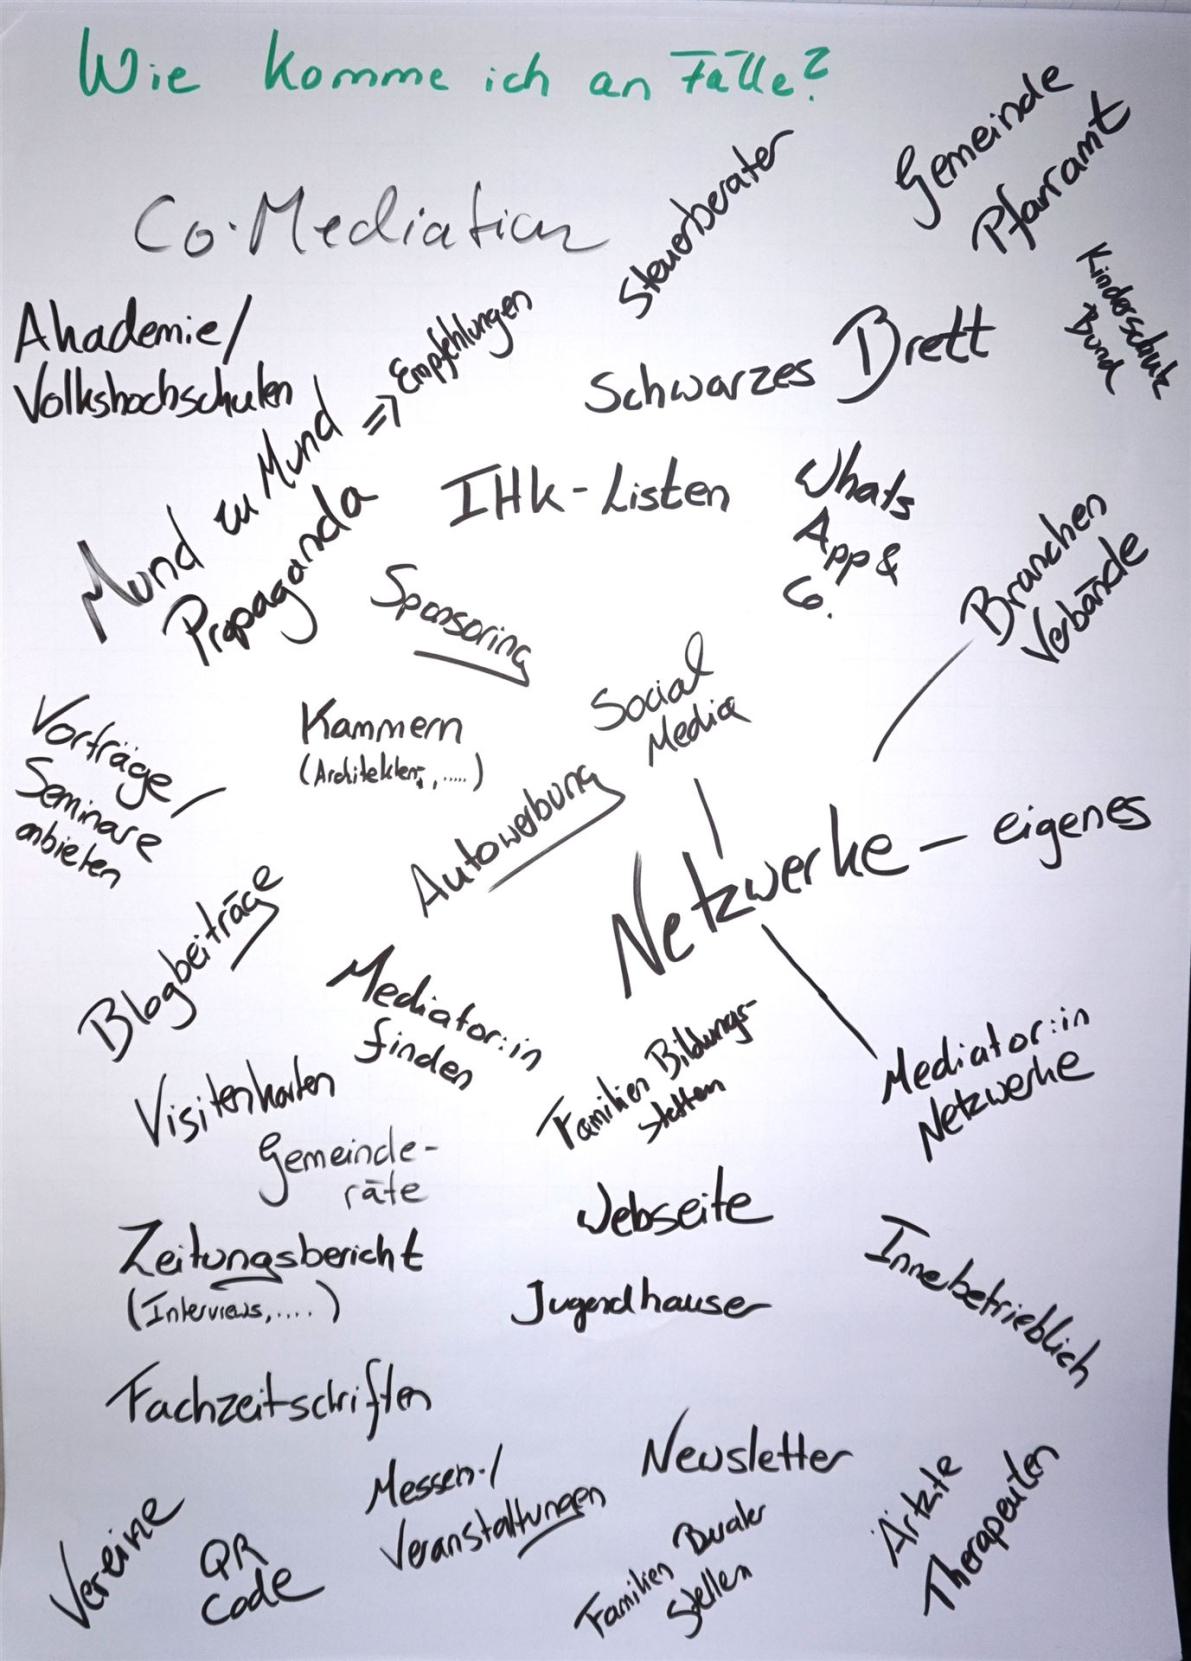 Wie komme ich an Fälle?
Gemeinde
Pfarramt
Steuerberater
Co-Mediation
Kinderschutz
Bund
Akademie/
Volkshochschulen
Mund zu Mund => Empfehlungen
Propaganda
Schwarzes Brett
IHK-Listen
Whats
App &
Co.
Branchen
Verbände
Sponsoring
Social
Media
Kammern
(Architekten, .....)
Vorträge /
Seminare
anbieten
Autowerbung
Netzwerke – eigenes
Blogbeiträge
Mediator:in
finden
Familien Bildungs-
stetten
Mediator:in
Netzwerke
Visitenkarten
Gemeinde-
räte
Webseite
Zeitungsbericht
(Interviews, ....)
Jugendhäuser
Innebetrieblich
Fachzeitschriften
Newsletter
Messen-/
Veranstaltungen
Vereine
QR
Code
Familien Berater
stellen
Ärtzte
Therapeuten